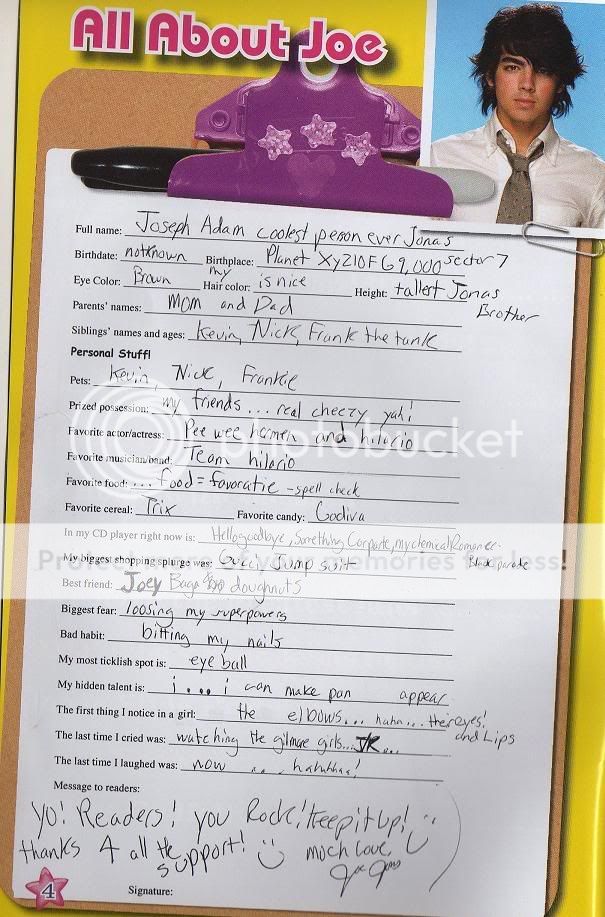 All About Joe
Full name: Joseph Adam coolest person ever Jonas
Birthdate: notknown Birthplace: Planet XyZ10FG9,000 sector 7
Eye Color: Brown my Hair color: is nice Height: tallest Jonas Brother
Parents' names: Mom and Dad
Siblings' names and ages: Kevin, Nick, Frank the tank
Personal Stuff!
Pets: Kevin, Nick, Frankie
Prized possession: my friends... real cheezy yah!
Favorite actor/actress: Pee wee hermen and hilario
Favorite musician/band: Team hilario
Favorite food: ... food = favoratie - spell check
Favorite cereal: Trix Favorite candy: Godiva
In my CD player right now is: Hellogoodbye, Something Corporate, mychemicalRomance - Black parade
My biggest shopping splurge was: Gucci Jump suit
Best friend: Joey Baga doughnuts
Biggest fear: loosing my superpowers
Bad habit: bitting my nails
My most ticklish spot is: eye ball
My hidden talent is: i .... i can make pan appear
The first thing I notice in a girl: the elbows... haha... their eyes! and Lips
The last time I cried was: watching the gilmore girls... JK...
The last time I laughed was: now ... hahahha!
Message to readers:
Yo! Readers! you Rock! Keep it up! :)
thanks 4 all the support! :) moch love,
Joe Jonas
4
Signature:
photobucket
Protect more of your memories for less!